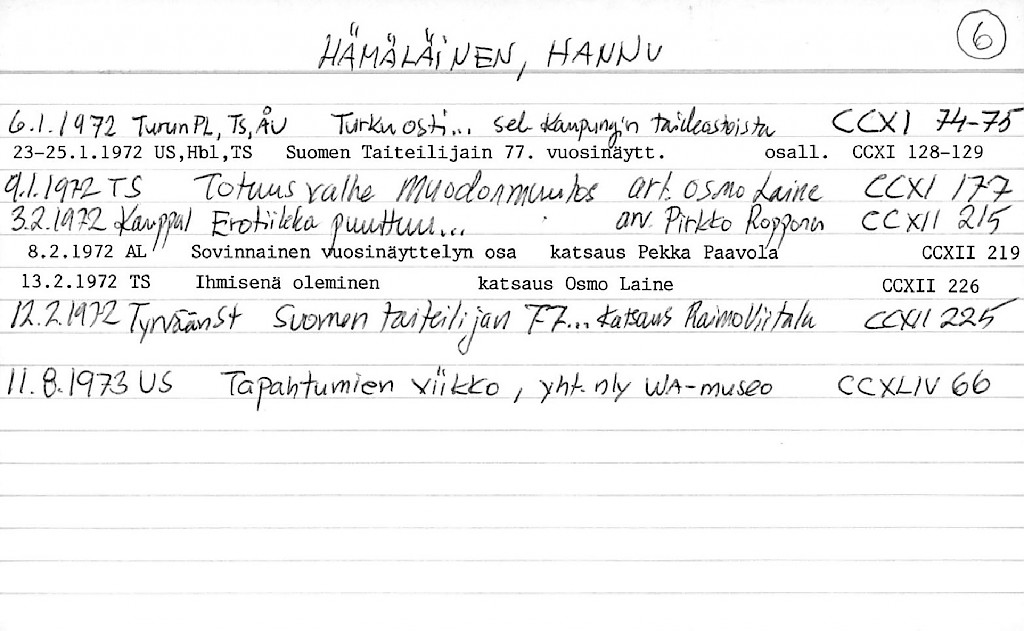 HÄMÄLÄINEN, HANNU 6
6.1.1972 Turun PL, Ts, ÅU Turku osti... sel. kaupungin taideostoista CCXI 74-75
23-25.1.1972 US,Hbl,TS Suomen Taiteilijain 77. vuosinäytt. osall. CCXI 128-129
9.1.1972 TS Totuus valhe muodonmuutos art. Osmo Laine CCXI 177
3.2.1972 Kauppal Erotiikka puuttuu... arv. Pirkko Ropponen CCXII 215
8.2.1972 AL Sovinnainen vuosinäyttelyn osa katsaus Pekka Paavola CCXII 219
13.2.1972 TS Ihmisenä oleminen katsaus Osmo Laine CCXII 226
12.2.1972 TyrväänSt Suomen taiteilijan 77... katsaus Raimo Viitala CCXII 225
11.8.1973 US Tapahtumien viikko, yht. nly WA-museo CCXLIV 66